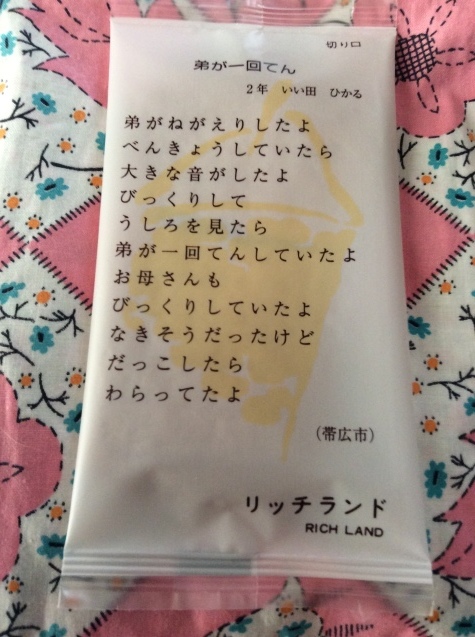 切り口
弟が一回てん
2年 いい田 ひかる
弟がねがえりしたよ
べんきょうしていたら
大きな音がしたよ
びっくりして
うしろを見たら
弟が一回てんしていたよ
お母さんも
びっくりしていたよ
なきそうだったけど
だっこしたら
わらってたよ
(帯広市)
リッチランド
RICH LAND